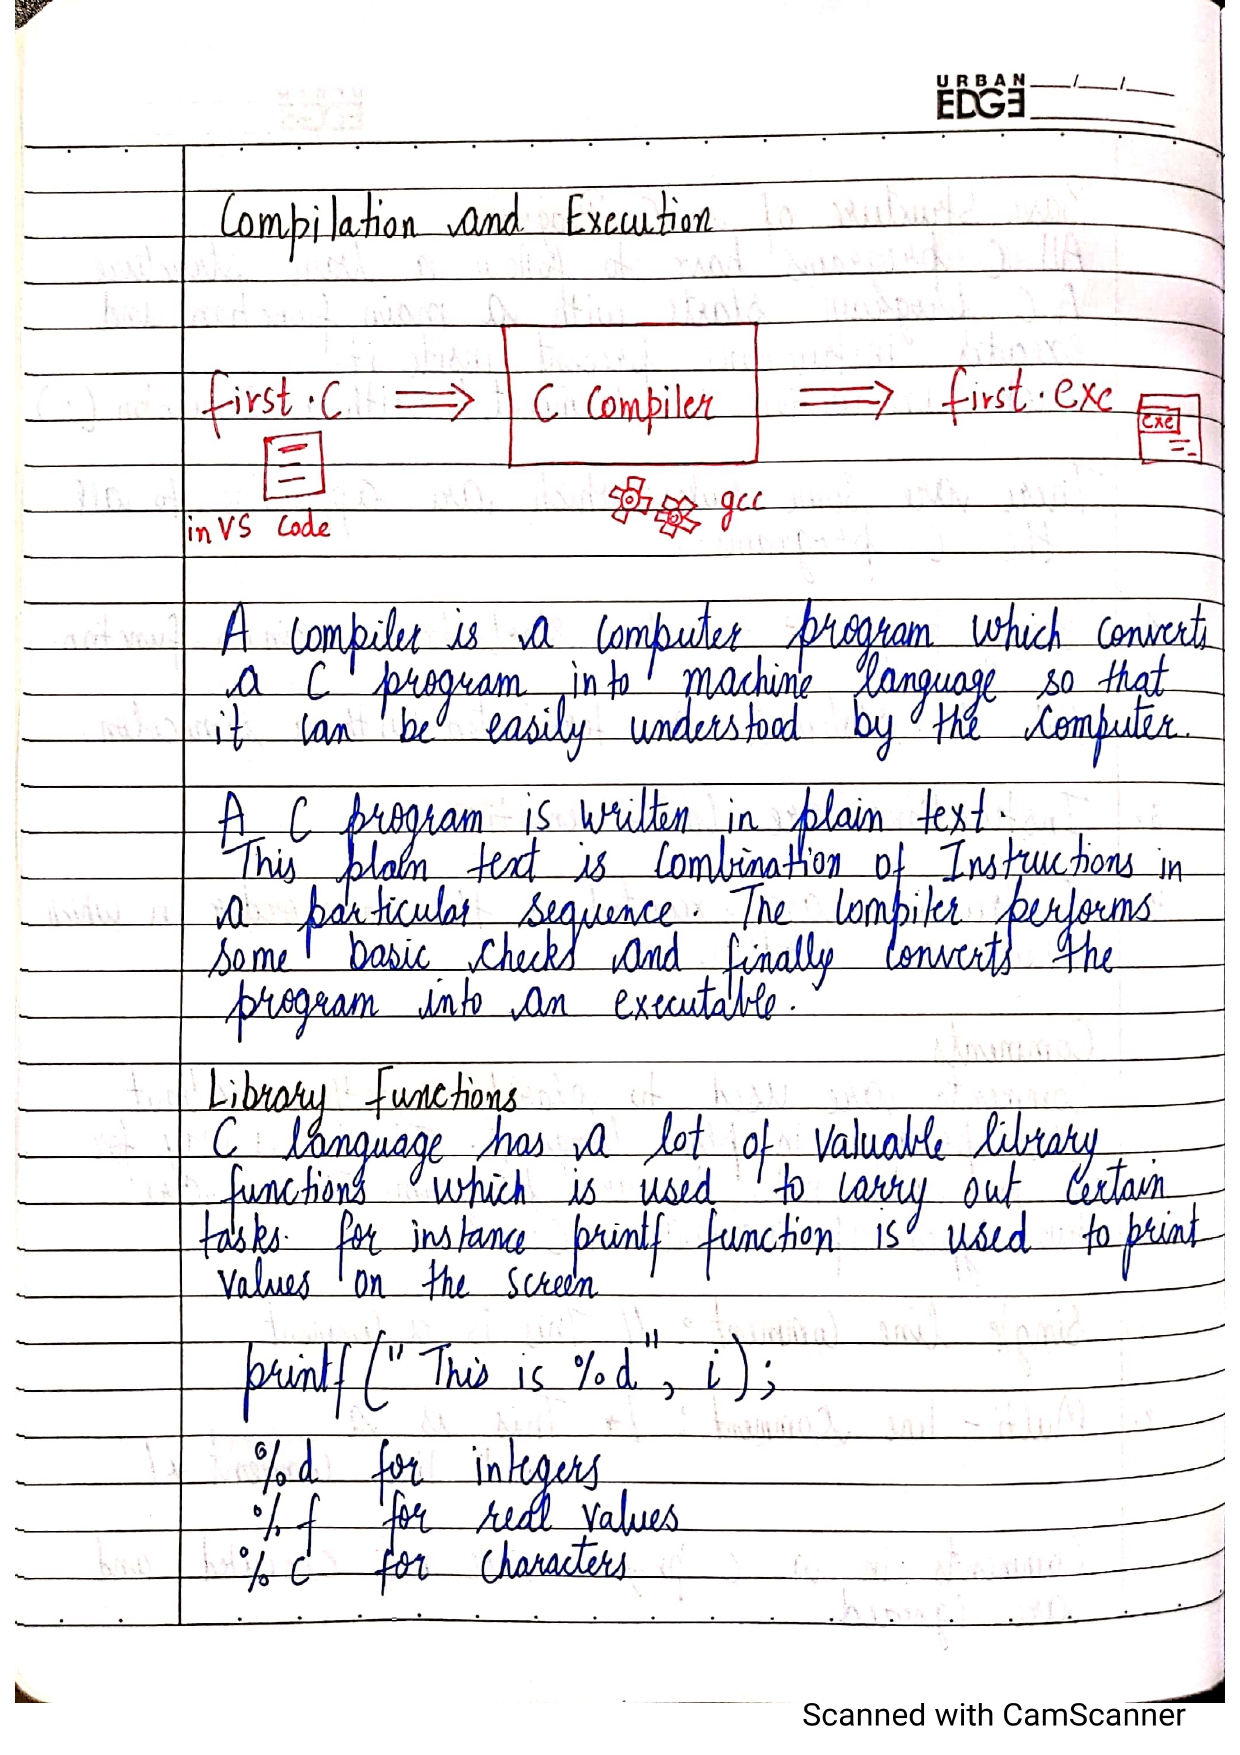 URBAN
EDGE
Compilation and Execution
first.C ⟹ C Compiler ⟹ first.exe
exe
in VS Code
gcc
A compiler is a computer program which converts
a C program into machine language so that
it can be easily understood by the computer.
A C program is written in plain text.
This plain text is combination of Instructions in
a particular sequence. The compiler performs
some basic checks and finally converts the
program into an executable.
Library Functions
C language has a lot of valuable library
functions which is used to carry out certain
tasks. for instance printf function is used to print
values on the screen
printf (" This is %d", i);
%d for integers
%f for real values
%c for characters
Scanned with CamScanner